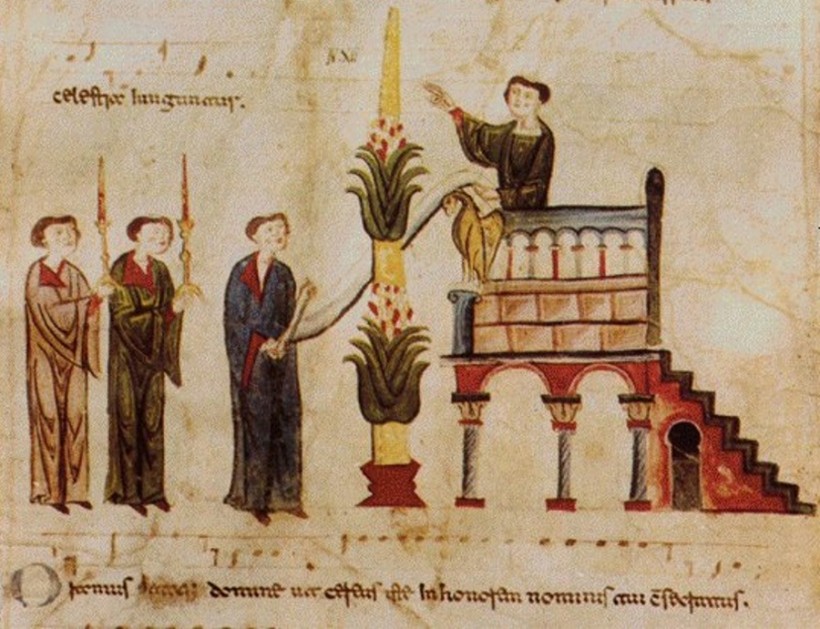 celestia Iunguntur.
Oramus domine ut cereus iste In honorem nominis tui c̄secratus.